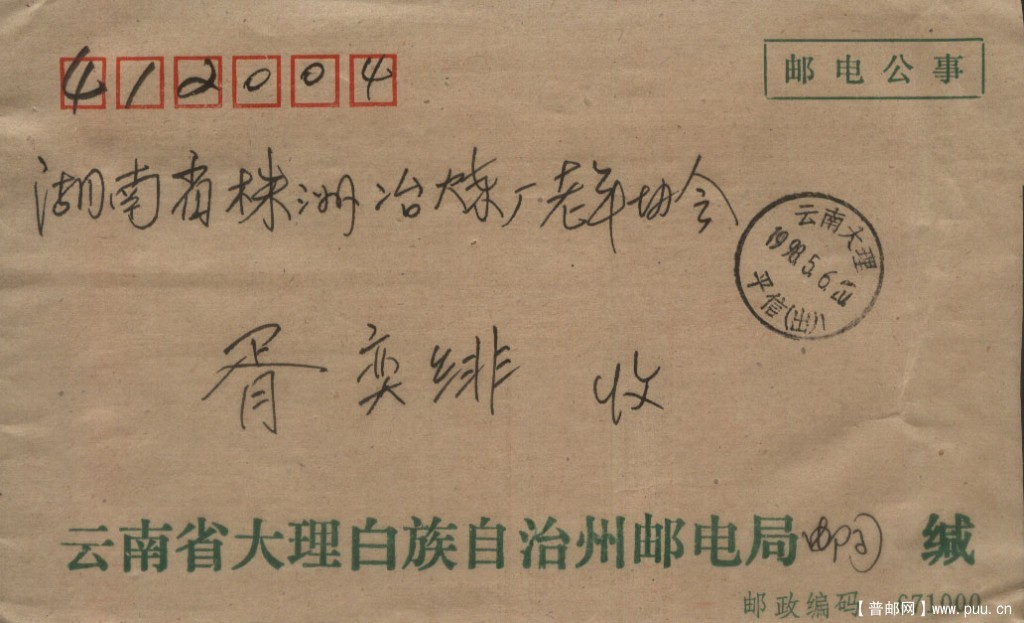 412004
邮电公事
湖南省株洲冶炼厂老年协会
云南大理
1998.5.6
平信(出)
胥奕绯 收
云南省大理白族自治州邮电局 缄
邮政编码 671000
【普邮网】www.puu.cn